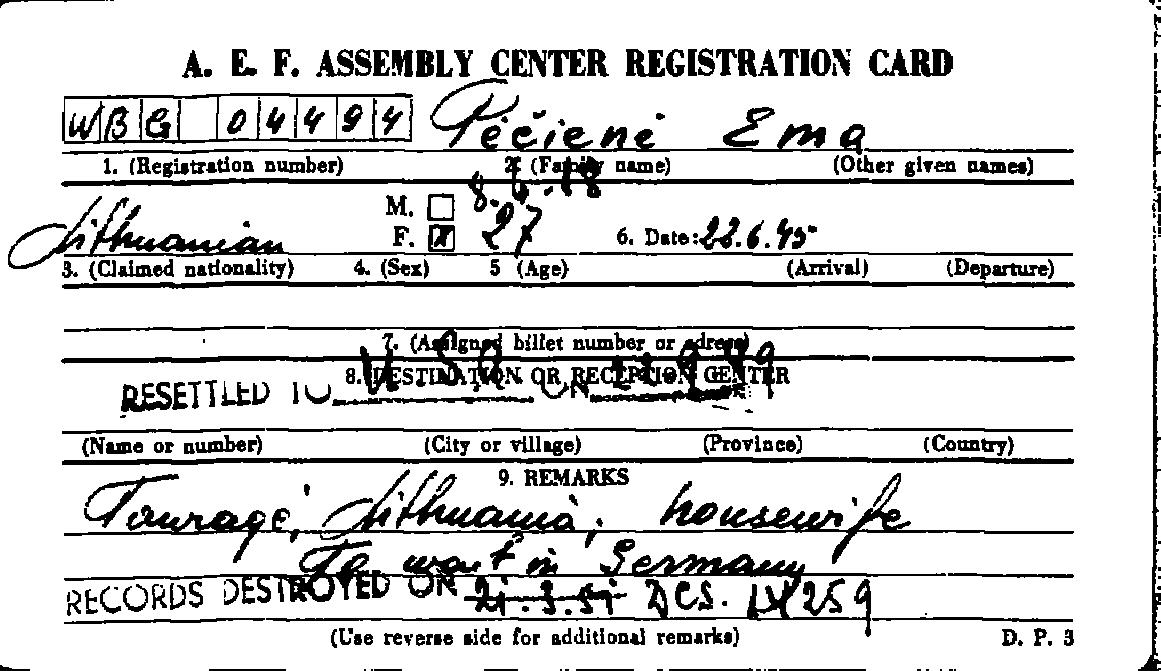 A. E. F. ASSEMBLY CENTER REGISTRATION CARD
WBG 04494 Pėčienė Ema
1. (Registration number) 2. (Family name) (Other given names)
M. 8. .18
Lithuanian F. X 27 6. Date: 22.6.45
3. (Claimed nationality) 4. (Sex) 5 (Age) (Arrival) (Departure)
7. (Assigned billet number or adress)
8. DESTINATION OR RECEPTION CENTER
RESETTLED TO U.S.A. ON
(Name or number) (City or village) (Province) (Country)
9. REMARKS
Tauragė, Lithuania, housewife
To wait in Germany
RECORDS DESTROYED ON 21.3.51 DCS. 259
(Use reverse side for additional remarks) D. P. 3